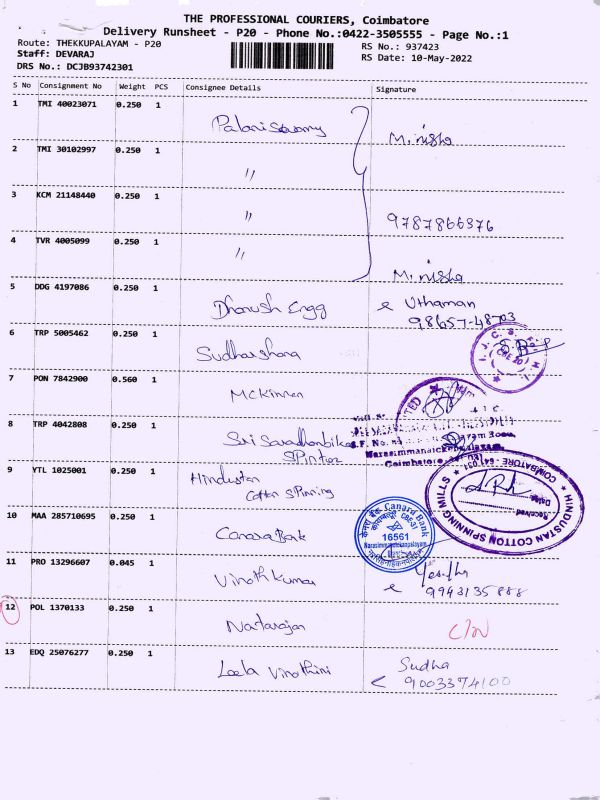 THE PROFESSIONAL COURIERS, Coimbatore
Delivery Runsheet - P20 - Phone No.:0422-3505555 - Page No.:1
Route: THEKKUPALAYAM - P20
Staff: DEVARAJ
DRS No.: DCJB93742301
RS No.: 937423
RS Date: 10-May-2022
S No Consignment No Weight PCS Consignee Details Signature
1 TMI 40023071 0.250 1 Palaniswamy M. nisha
2 TMI 30102997 0.250 1 "
3 KCM 21148440 0.250 1 " 9787866376
4 TVR 4005099 0.250 1 " M. nisha
5 DDG 4197086 0.250 1 Dhanush Engg Uthaman
98657-48703
6 TRP 5005462 0.250 1 Sudharshana
7 PON 7842900 0.560 1 McKinnen
8 TRP 4042808 0.250 1 Sri Saradhambika
Spintex
S.F. No.
Narasimmanaickenpalayam,
Coimbatore
9 VTL 1025001 0.250 1 Hindustan
Cotton Spinning
HINDUSTAN COTTON SPINNING MILLS
COIMBATORE - 641 031
Received
Date
10 MAA 285710695 0.250 1 Canara Bank
Canara Bank
16561
Narasimmanaickenpalayam
11 PRO 13296607 0.045 1 Vinoth Kumar
9943135888
12 POL 1370133 0.250 1 Natarajan C/N
13 EDQ 25076277 0.250 1 Leela Vinothini Sudha
9003374100